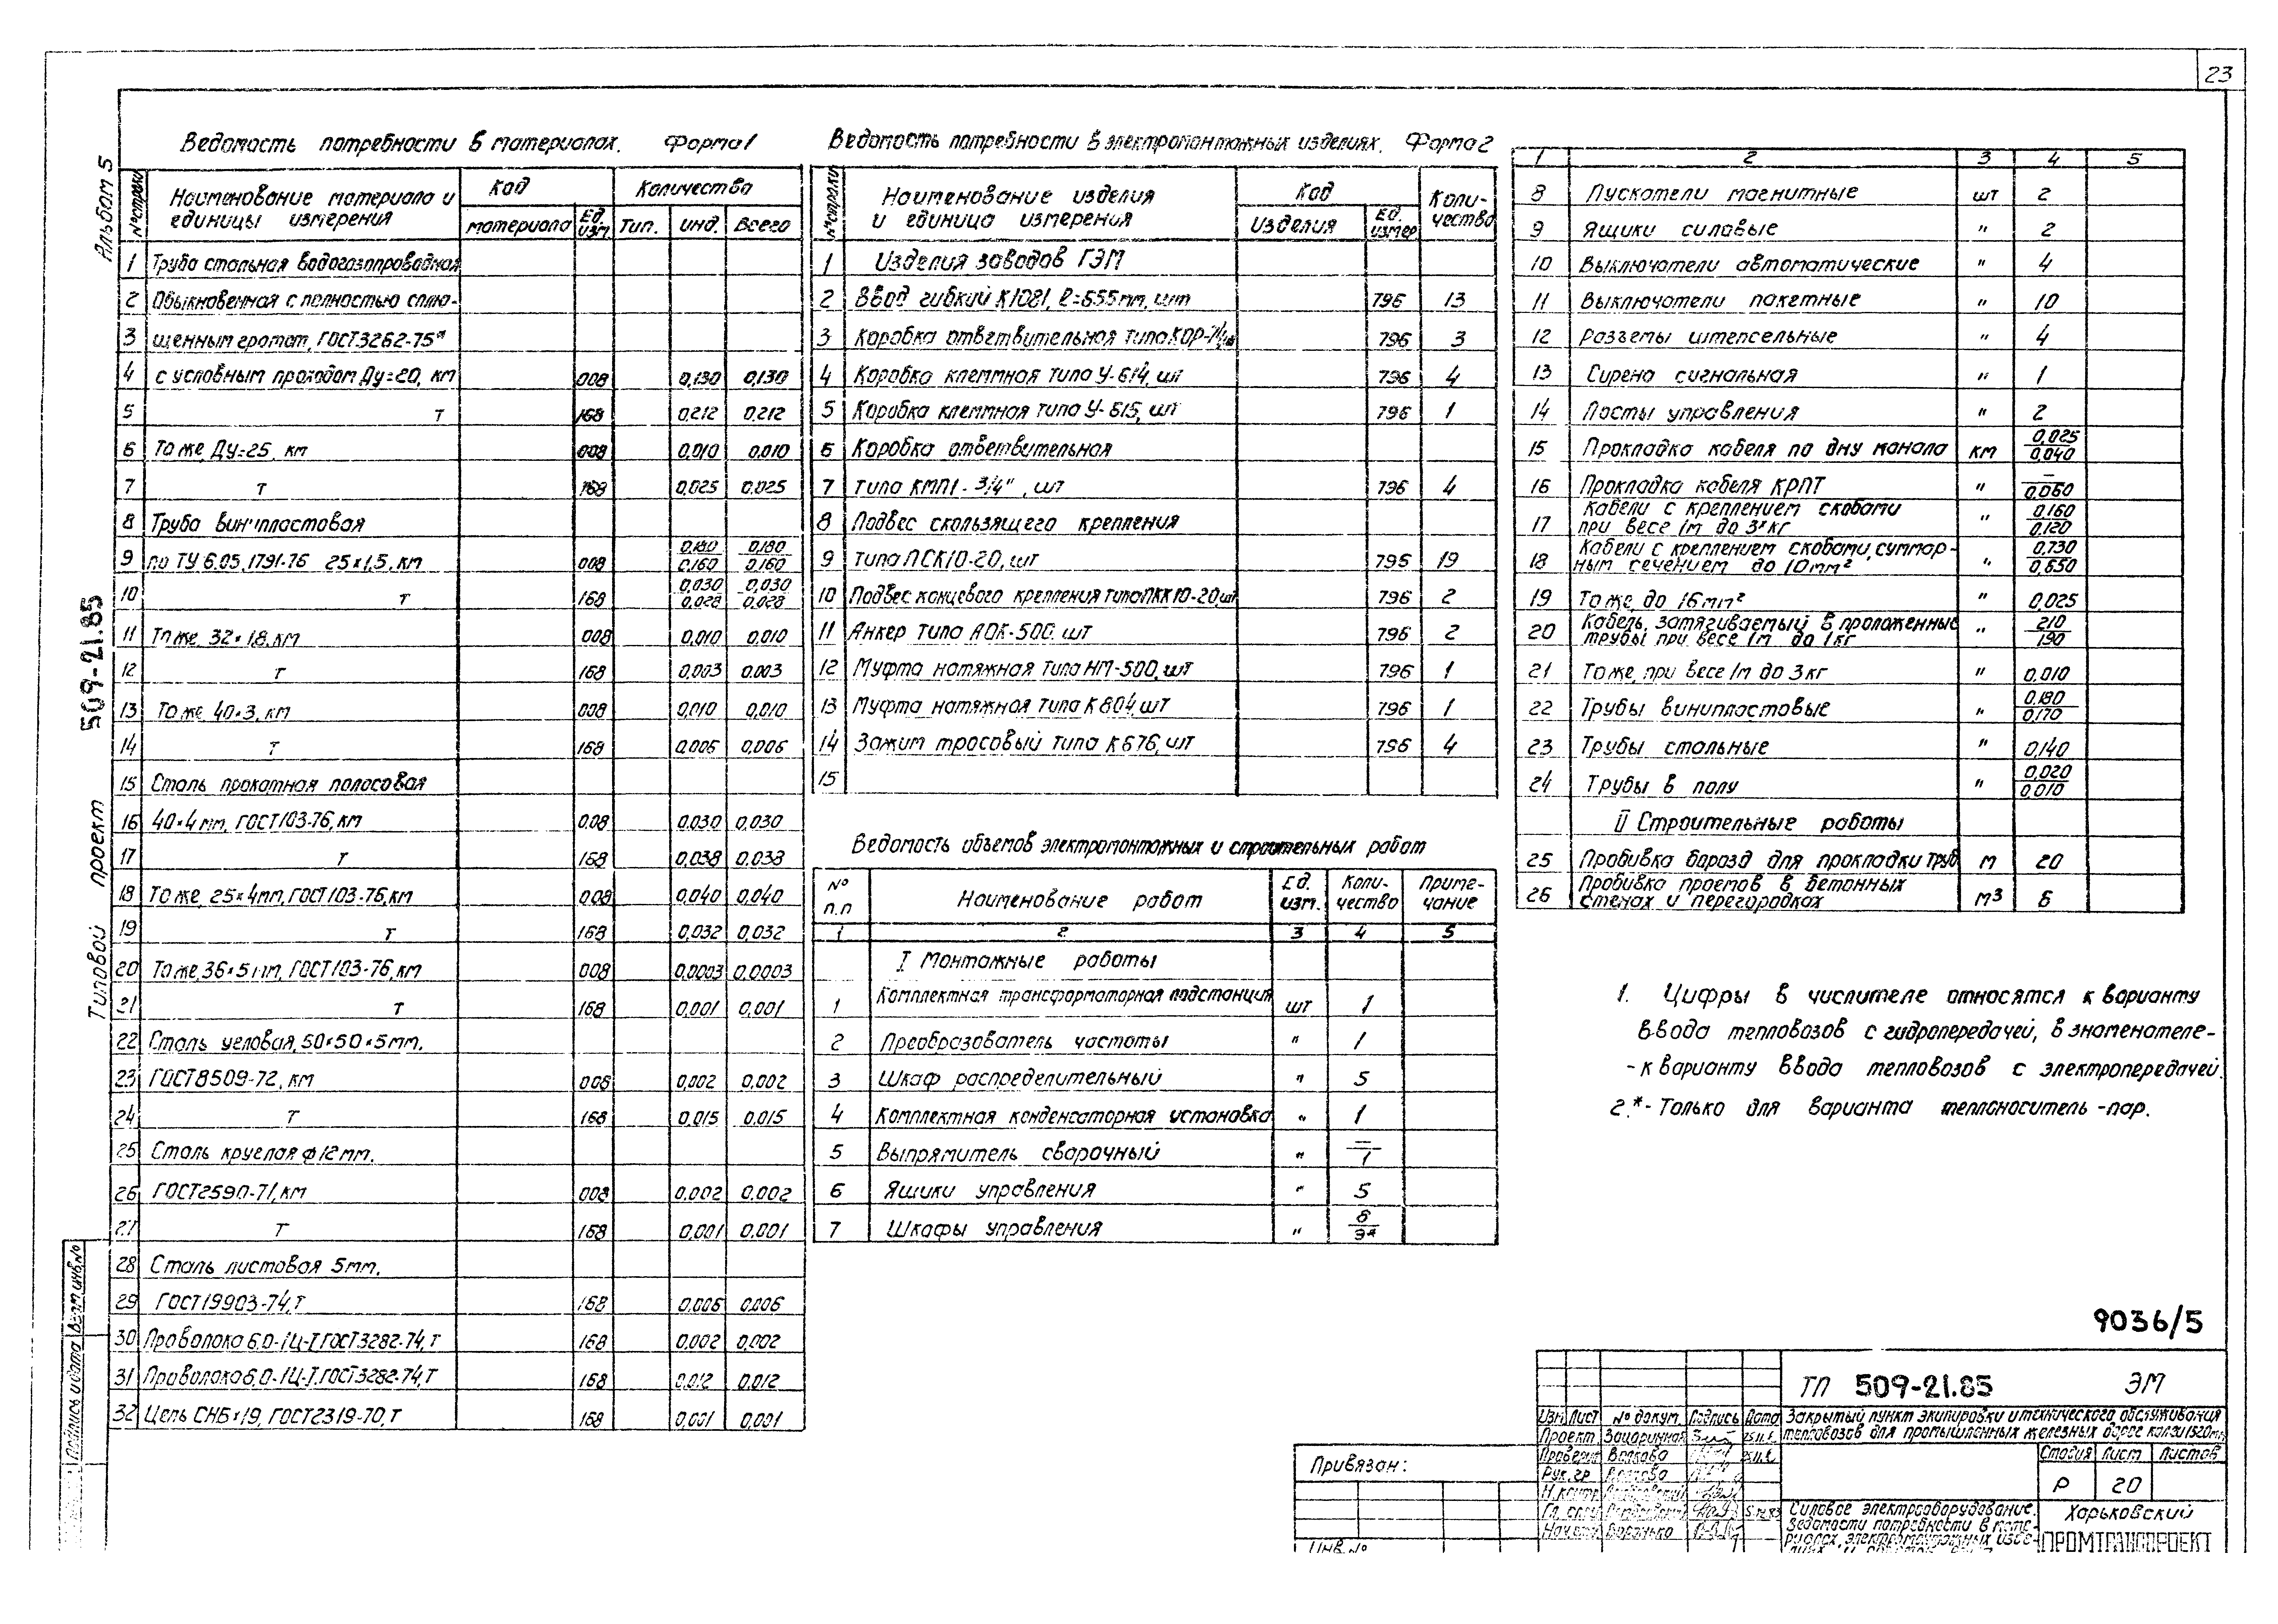 23
Альбом 5
Типовой проект 509-21.85
Ведомость потребности в материалах. Форма 1
№ строки | Наименование материала и единицы измерения | Код материала | Ед. изм. | Количество Тип. | инд. | Всего
1 Труба стальная водогазопроводная
2 Обыкновенная с полностью сплю-
3 щенным гротом, ГОСТ 3262-75*
4 с условным проходом Ду=20, км 008 0,130 0,130
5 т 168 0,212 0,212
6 То же, Ду=25, км 008 0,010 0,010
7 т 168 0,025 0,025
8 Труба винипластовая
9 по ТУ 6.05.1791-76 25×1,5, км 008 0,180/0,160 0,180/0,160
10 т 168 0,030/0,028 0,030/0,028
11 То же, 32×1,8, км 008 0,010 0,010
12 т 168 0,003 0,003
13 То же 40×3, км 008 0,010 0,010
14 т 168 0,006 0,006
15 Сталь прокатная полосовая
16 40×4 мм, ГОСТ 103-76, км 008 0,030 0,030
17 т 168 0,038 0,038
18 То же, 25×4мм, ГОСТ 103-76, км 008 0,040 0,040
19 т 168 0,032 0,032
20 То же, 36×5 мм, ГОСТ 103-76, км 008 0,0003 0,0003
21 т 168 0,001 0,001
22 Сталь угловая, 50×50×5мм,
23 ГОСТ 8509-72, км 008 0,002 0,002
24 т 168 0,015 0,015
25 Сталь круглая ф12мм.
26 ГОСТ 2590-71, км 008 0,002 0,002
27 т 168 0,001 0,001
28 Сталь листовая 5мм,
29 ГОСТ 19903-74, т 168 0,006 0,006
30 Проволока 6.0-1Ц-I ГОСТ 3282-74, т 168 0,002 0,002
31 Проволока 6,0-1Ц-I ГОСТ 3282-74, т 168 0,012 0,012
32 Цепь СНБ×19, ГОСТ 2319-70, т 168 0,001 0,001
Ведомость потребности в электромонтажных изделиях. Форма 2
№ строки | Наименование изделия и единица измерения | Код Изделия | Ед. измер | Коли-чество
1 Изделия заводов ГЭМ
2 Ввод гибкий К1081, l=655мм, шт 796 13
3 Коробка ответвительная типа КОР- 796 3
4 Коробка клеммная типа У-614, шт 796 4
5 Коробка клеммная типа У-615, шт 796 1
6 Коробка ответвительная
7 типа КМП1-3/4", шт 796 4
8 Подвес скользящего крепления
9 типа ПСК10-20, шт 796 19
10 Подвес концевого крепления типа ПКК10-20, шт 796 2
11 Анкер типа АОК-500, шт 796 2
12 Муфта натяжная типа НМ-500, шт 796 1
13 Муфта натяжная типа К804, шт 796 1
14 Зажим тросовый типа К676, шт 796 4
15
Ведомость объемов электромонтажных и строительных работ
№ п.п | Наименование работ | Ед. изм. | Коли-чество | Приме-чание
1 2 3 4 5
I Монтажные работы
1 Комплектная трансформаторная подстанция шт 1
2 Преобразователь частоты " 1
3 Шкаф распределительный " 5
4 Комплектная конденсаторная установка " 1
5 Выпрямитель сварочный " –/1
6 Ящики управления " 5
7 Шкафы управления "
1 2 3 4 5
8 Пускатели магнитные шт 2
9 Ящики силовые " 2
10 Выключатели автоматические " 4
11 Выключатели пакетные " 10
12 Разъемы штепсельные " 4
13 Сирена сигнальная " 1
14 Посты управления " 2
15 Прокладка кабеля по дну канала км 0,025/0,040
16 Прокладка кабеля КРПТ " –/0,060
17 Кабели с креплением скобами при весе 1м до 3кг " 0,160/0,120
18 Кабели с креплением скобами, суммар-ным сечением до 10мм² " 0,730/0,650
19 То же, до 16мм² " 0,025
20 Кабель, затягиваемый в проложенные трубы при весе 1м до 1кг " 210/190
21 То же, при весе 1м до 3кг " 0,010
22 Трубы винипластовые " 0,180/0,170
23 Трубы стальные " 0,140
24 Трубы в полу " 0,020/0,010
II Строительные работы
25 Пробивка борозд для прокладки труб м 20
26 Пробивка проемов в бетонных стенах и перегородках м3 6
1. Цифры в числителе относятся к варианту
ввода тепловозов с гидропередачей, в знаменателе-
- к варианту ввода тепловозов с электропередачей.
2.*- Только для варианта теплоноситель - пар.
9036/5
ТП 509-21.85 ЭМ
Изм Лист № докум. Подпись Дата
Закрытый пункт экипировки и технического обслуживания
тепловозов для промышленных железных дорог колеи 1520мм
Проект
Проверил Волкова
Рук. гр Волкова
Н.контр
Стадия Лист Листов
Р 20
Силовое электрооборудование.
Ведомости потребности в мате-
риалах, электромонтажных изде-
Харьковский
ПРОМТРАНСПРОЕКТ
Привязан:
Инв.№
Подпись и дата Взам инв.№